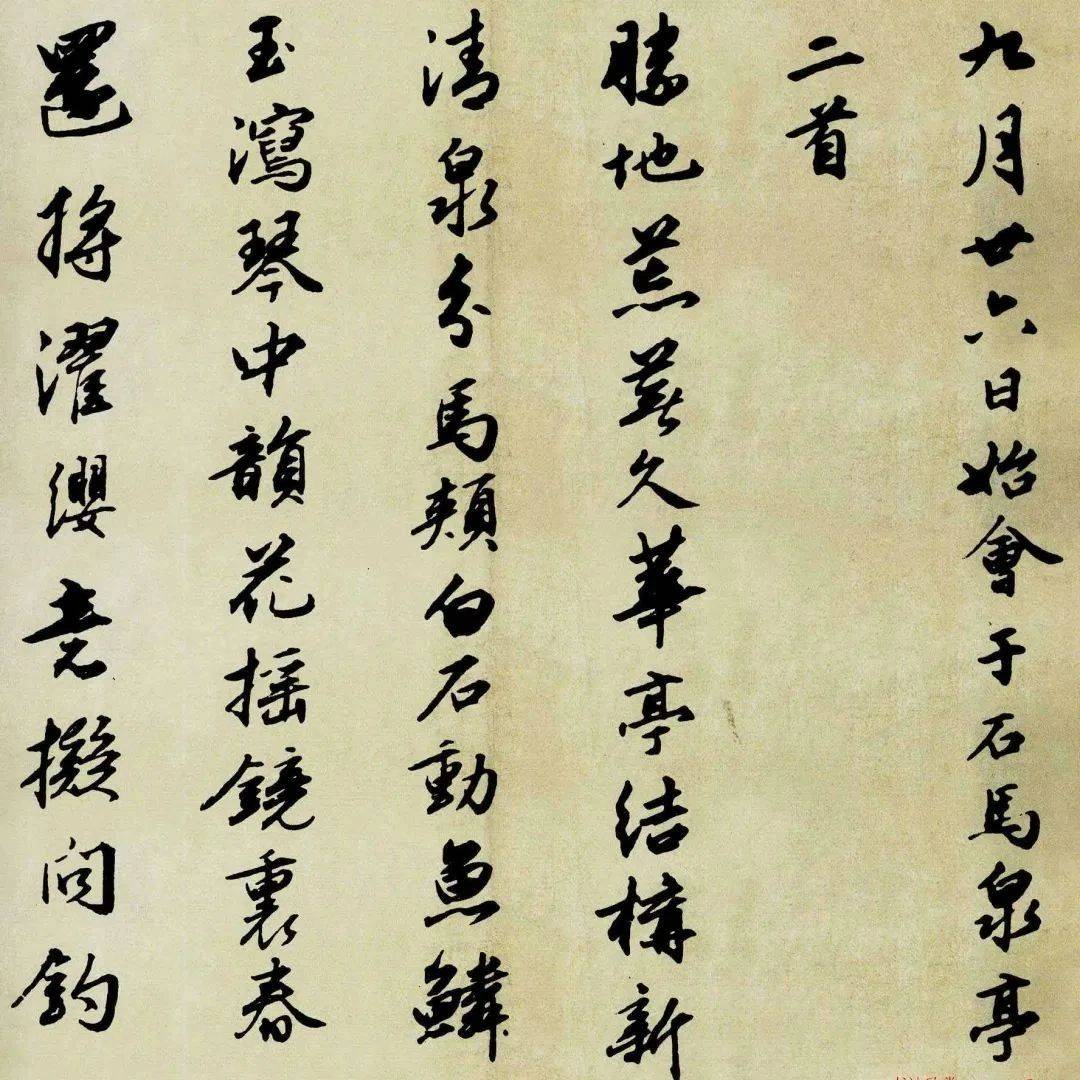 九月廿六日始會于石馬泉亭
二首
勝地荒蕪久華亭結構新
清泉分馬頰白石動魚鱗
玉瀉琴中韻花搖鏡裏春
還將濯纓意擬問釣